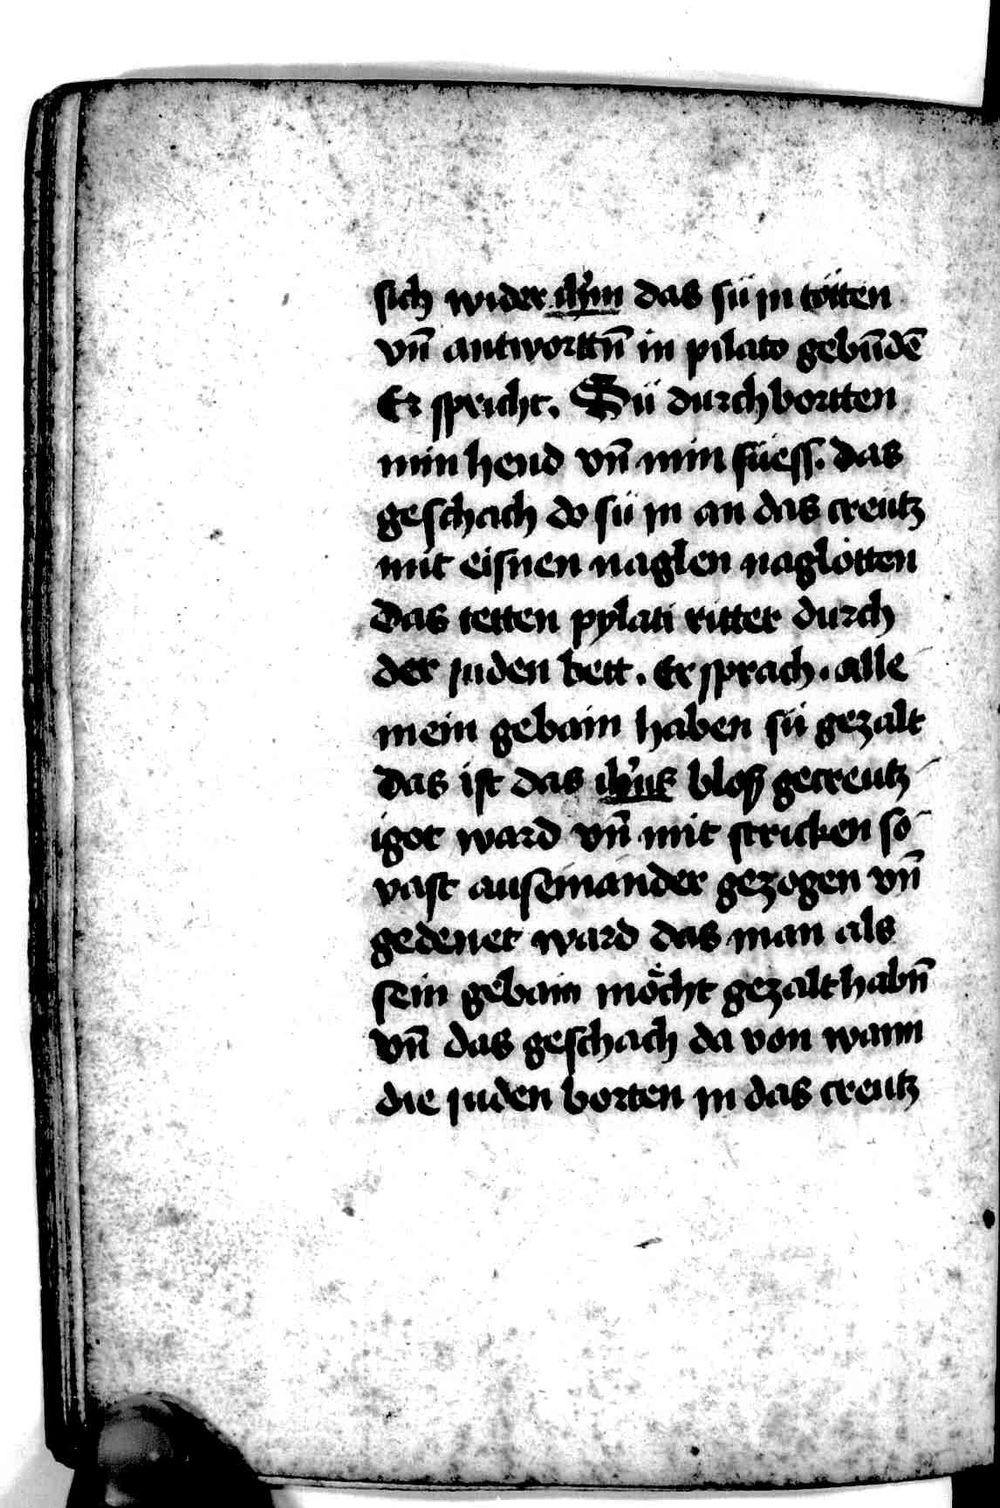 sich wider ihm̄ das sü in tötten
vn̄ antworttn̄ in pilato gebūdē
Er spricht. Sü durchbortten
min hend vn̄ min füess. das
geschach do sü in an das creütz
mit eisnen naglen naglotten
das tetten pylati ritter durch
der juden bett. Er sprach. alle
mein gebain haben sü gezalt
das ist das ihūs bloß gecreutz
igot ward vn̄ mit stricken so
vast auseinander gezogen vn̄
gedenet ward das man als
sein gebain möcht gezalt habn̄
vn̄ das geschach da von wann
die juden borten in das creutz